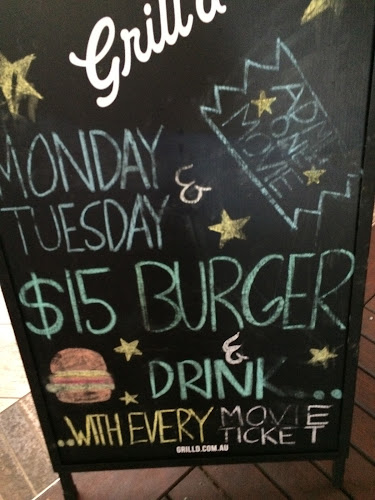 Grill'd
ADMIT
ONE
MOVIE
MONDAY
&
TUESDAY
$15 BURGER
&
DRINK...
..WITH EVERY MOVIE
TICKET
GRILLD.COM.AU